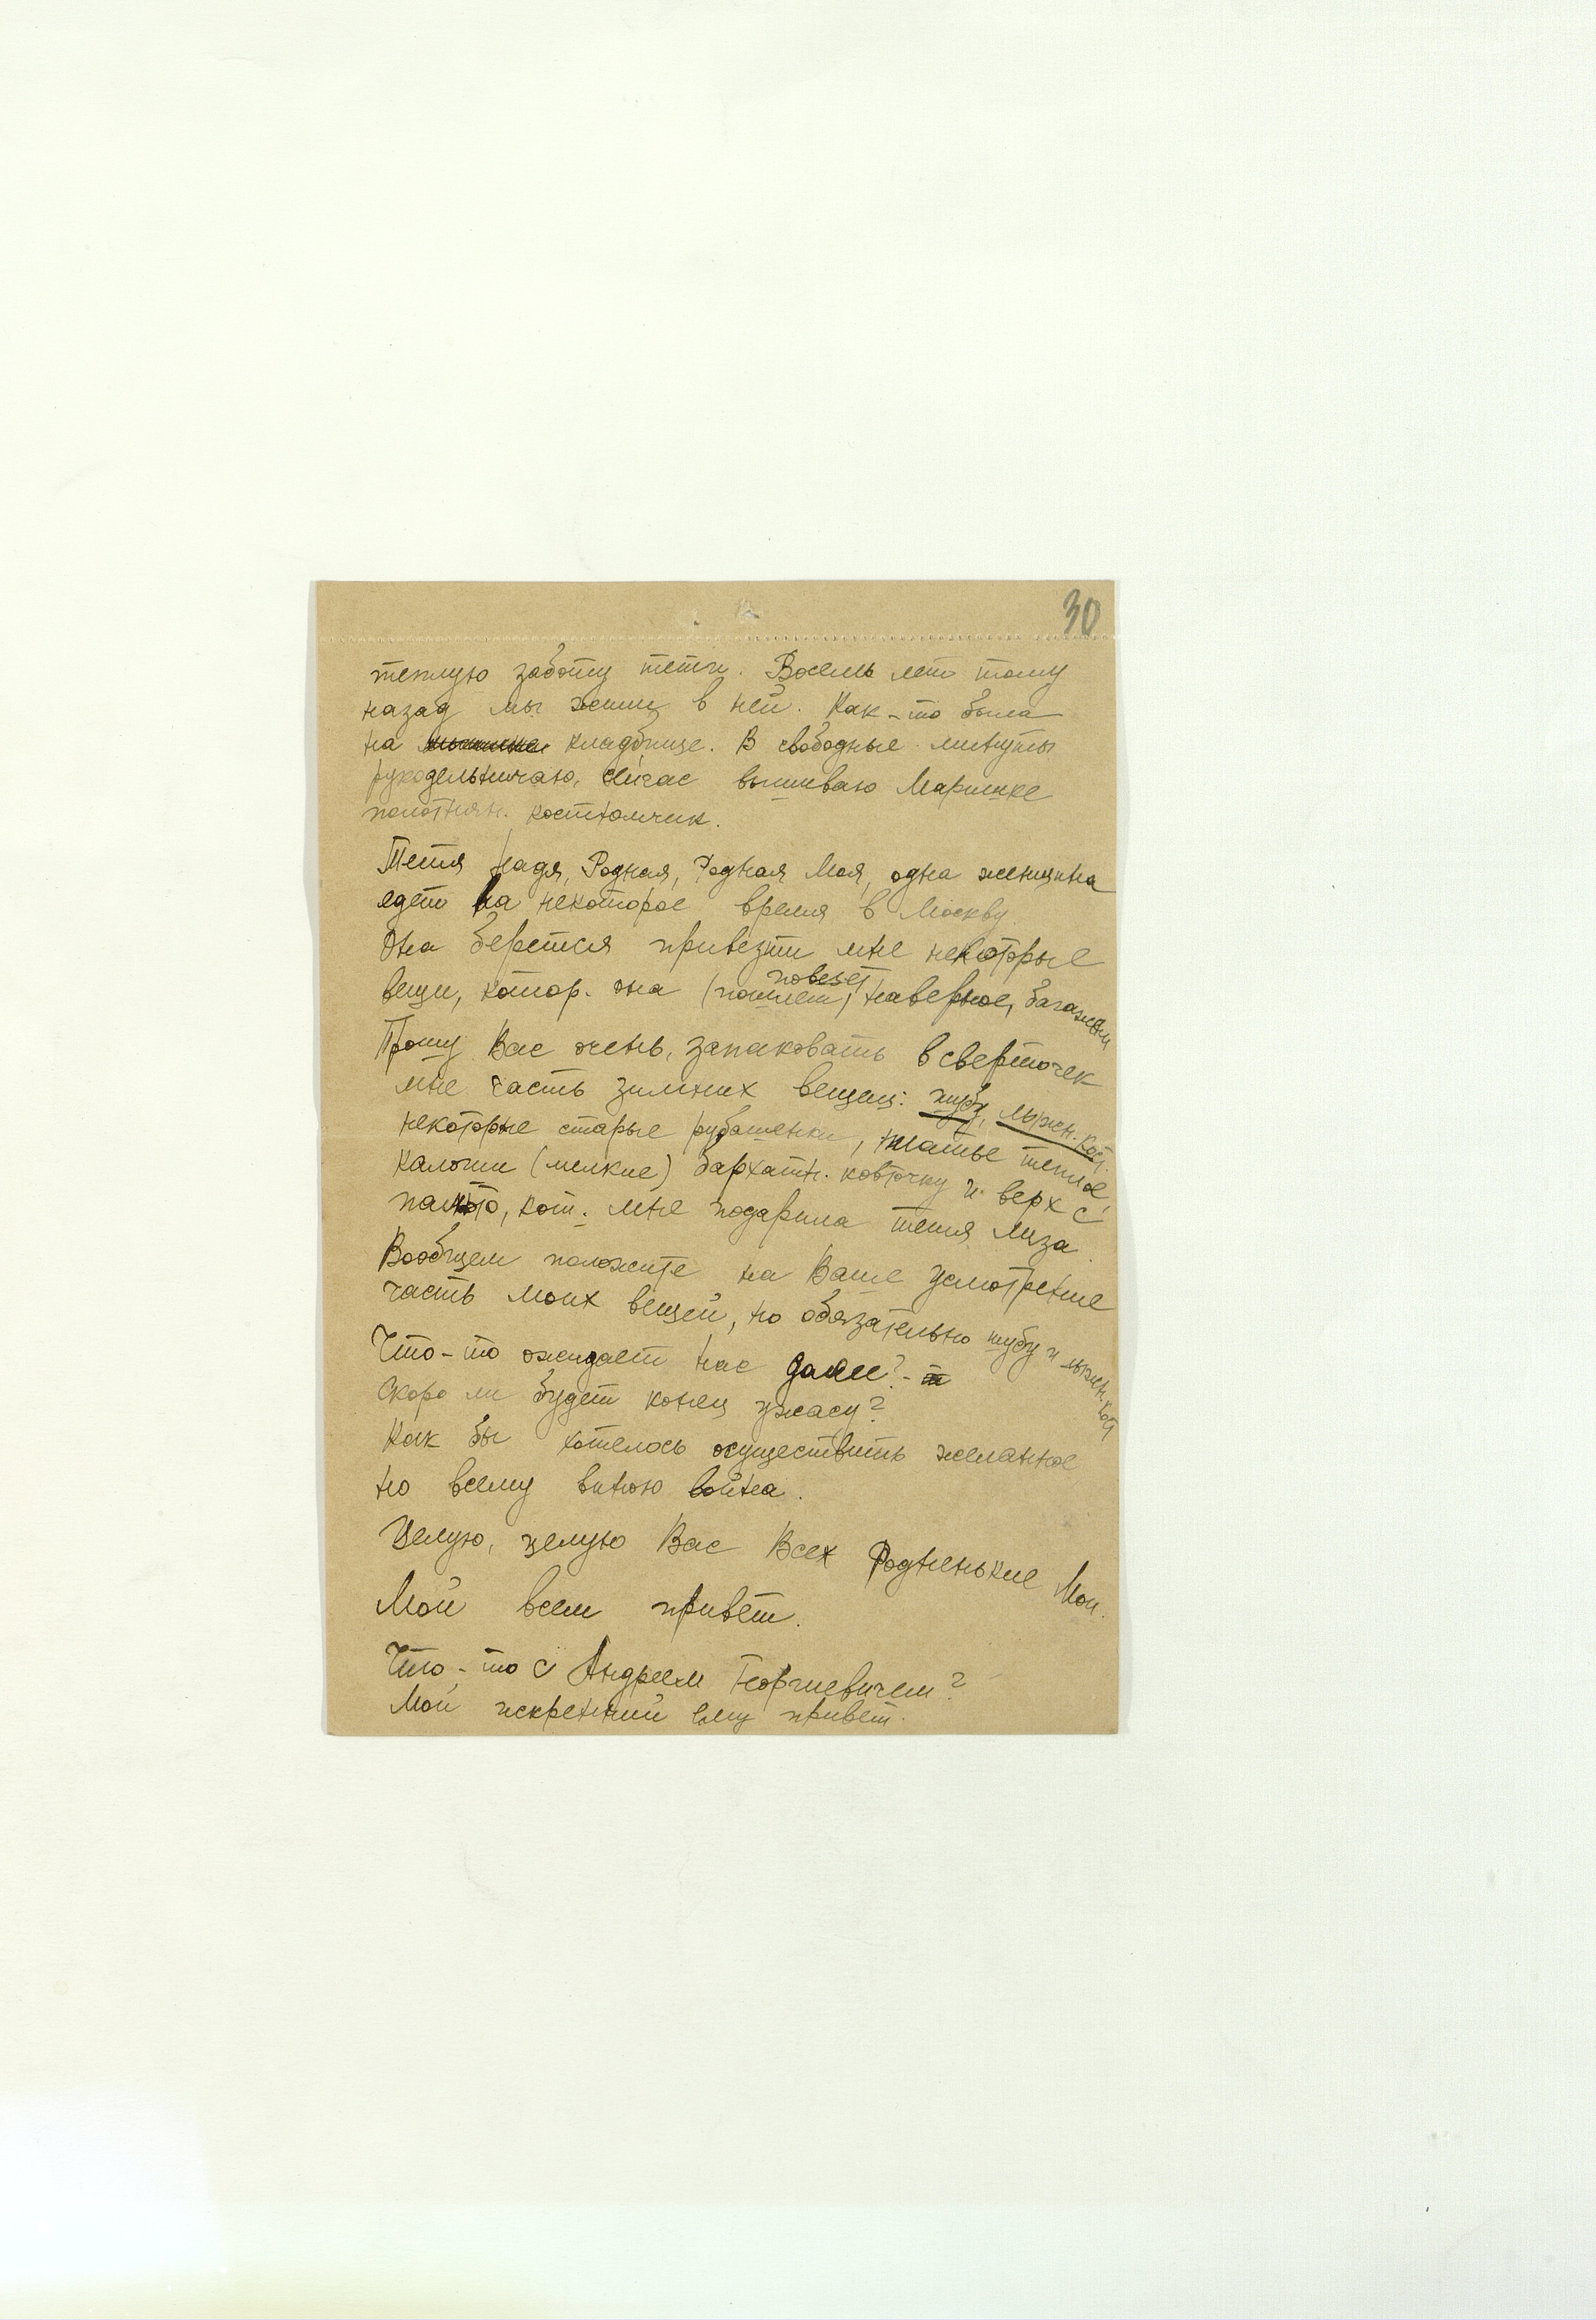 30
теплую заботу тети. Восемь лет тому
назад мы жили в ней. Как-то была
на кладбище. В свободные минуты
рукодельничаю, сейчас вышиваю Маришке
полотнян. костюмчик.
Тетя Надя, Родная, Родная Моя, одна женщина
едет на некоторое время в Москву
Она берется привезти мне некоторые
повезет
вещи, котор. она (пошлет) наверное, багажом
Прошу Вас очень, запаковать в сверточек
мне часть зимних вещей: шубу, лыжн. кост.
некоторые старые рубашенки, платье теплое,
калоши (мелкие) бархатн. кофточку и верх с
пальто, кот. мне подарила тетя Лиза.
Вообщем положите на Ваше усмотрение
часть моих вещей, но обязательно шубу и лыжн. кост
Что-то ожидает нас далее? -
Скоро ли будет конец ужасу?
Как бы хотелось осуществить желанное
но всему виною война.
Целую, целую Вас Всех Родненькие Мои.
Мой всем привет.
Что-то с Андреем Георгиевичем?
Мой искренний ему привет.